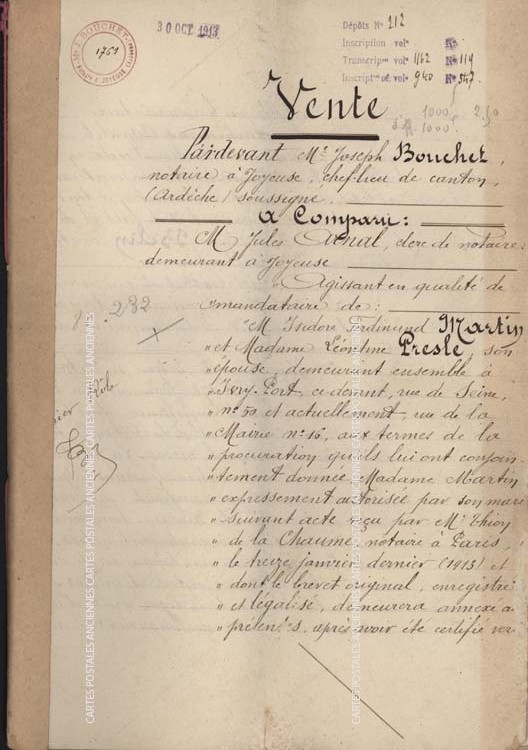 Mᵉ J. BOUCHET
1751
NOTAIRE À JOYEUSE
30 OCT 1913
Dépôts N° 212
Inscription volᵉ N°
Transcripᵒⁿ volᵉ 1162 N° 119
Inscriptᵒⁿ of. volᵉ 940 N° 547
1000
1000
2.50
Vente
Pardevant Mᵉ Joseph Bouchet,
notaire à Joyeuse, chef-lieu de canton,
(Ardèche) soussigné.
A Comparu:
M. Jules Arnal, clerc de notaire,
demeurant à Joyeuse
"Agissant en qualité de
"mandataire de:
232
"M. Isidore Ferdinand Martin
"et Madame Léontine Presle, son
"épouse, demeurant ensemble à
"Ivry-Port, ci-devant, rue de Seine,
"n° 50, et actuellement, rue de la
"Mairie n° 16, aux termes de la
"procuration qu'ils lui ont conjoin-
"tement donnée, Madame Martin
"expressement autorisée par son mari
"suivant acte reçu par Mᵉ Thion
"de la Chaume, notaire à Paris,
"le treize janvier dernier (1913) et
"dont le brevet original, enregistré
"et légalisé, demeurera annexé à
"présentes, après avoir été certifié vér
CARTES POSTALES ANCIENNES CARTES POSTALES ANCIENNES CARTES POSTALES ANCIENNES
CARTES POSTALES ANCIENNES CARTES POSTALES ANCIENNES CARTES POSTALES ANCIENNES